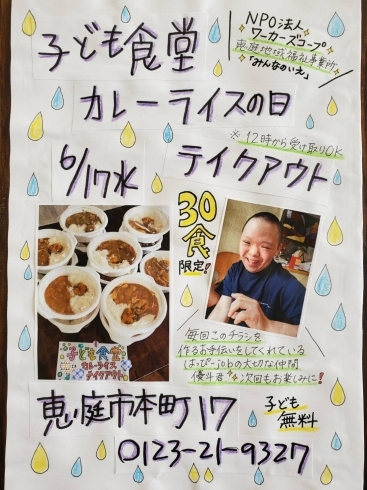 子ども食堂
NPO法人
ワーカーズコープ
恵庭地域福祉事業所
「みんなのいえ」
カレーライスの日
※12時から受け取りOK
6/17水 テイクアウト
30食
限定!
子ども食堂
カレーライス
テイクアウト
毎回このチラシを
作るお手伝いをしてくれている
はっぴーjobの大切な仲間
優斗君 次回もお楽しみに!
恵庭市本町17
子ども
無料
0123-21-9327